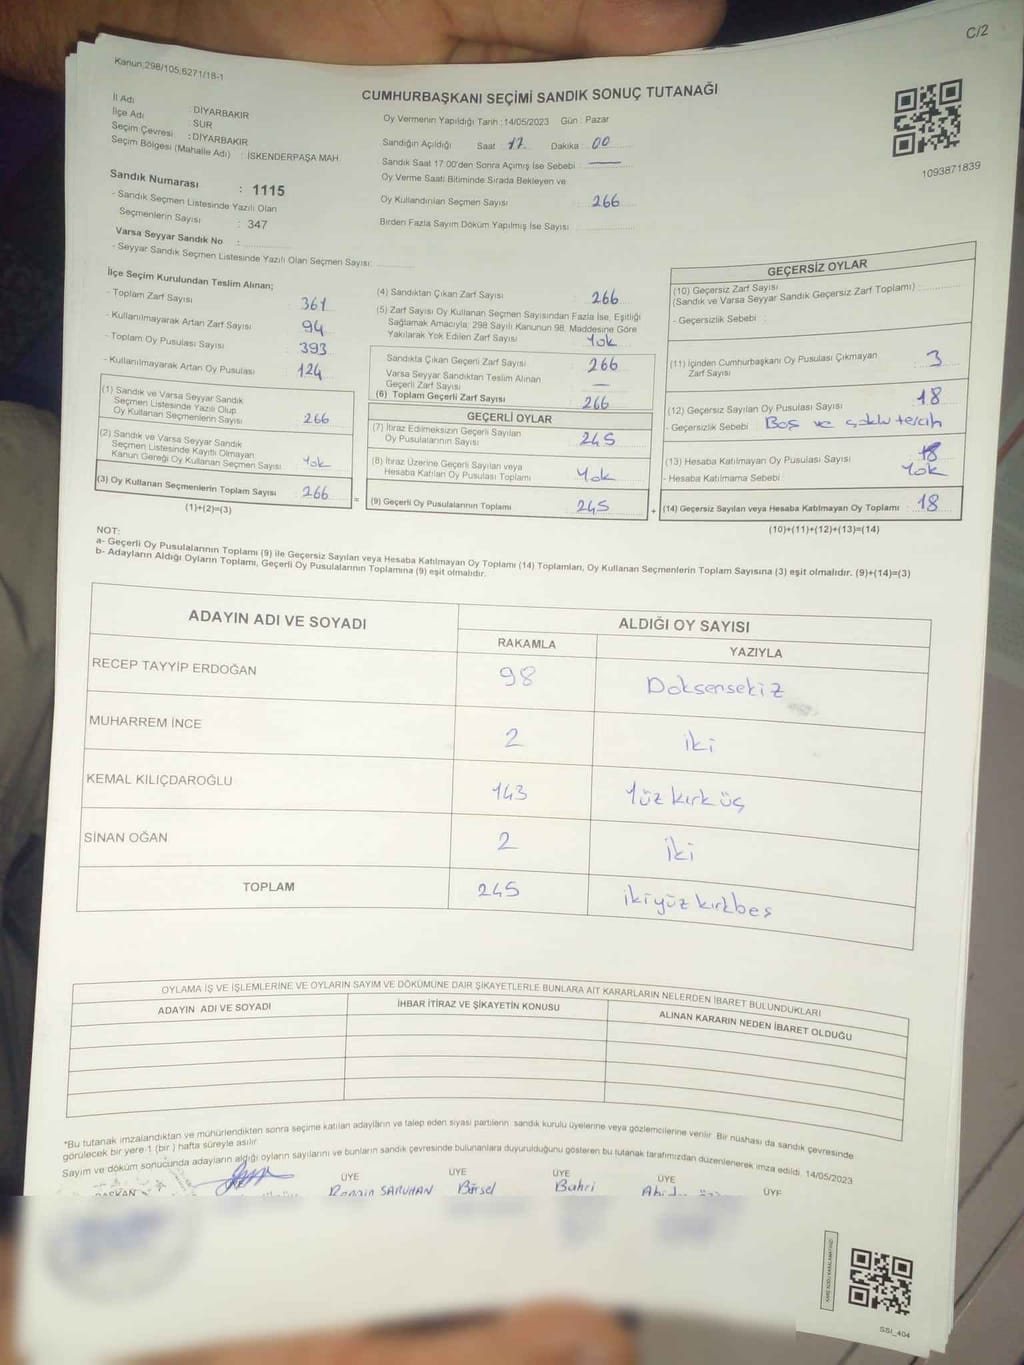 C/2
Kanun:298/105,6271/18-1
CUMHURBAŞKANI SEÇİMİ SANDIK SONUÇ TUTANAĞI
İl Adı : DİYARBAKIR
İlçe Adı : SUR
Seçim Çevresi : DİYARBAKIR
Seçim Bölgesi (Mahalle Adı) : İSKENDERPAŞA MAH.
Oy Vermenin Yapıldığı Tarih : 14/05/2023 Gün : Pazar
Sandığın Açıldığı Saat : 17 Dakika : 00
Sandık Saat 17:00'den Sonra Açımış İse Sebebi : —
Oy Verme Saati Bitiminde Sırada Bekleyen ve
Oy Kullandırılan Seçmen Sayısı : 266
Birden Fazla Sayım Döküm Yapılmış İse Sayısı :
1093871839
Sandık Numarası : 1115
- Sandık Seçmen Listesinde Yazılı Olan
Seçmenlerin Sayısı : 347
Varsa Seyyar Sandık No :
- Seyyar Sandık Seçmen Listesinde Yazılı Olan Seçmen Sayısı:
İlçe Seçim Kurulundan Teslim Alınan;
- Toplam Zarf Sayısı 361
- Kullanılmayarak Artan Zarf Sayısı 94
- Toplam Oy Pusulası Sayısı 393
- Kullanılmayarak Artan Oy Pusulası 124
(1) Sandık ve Varsa Seyyar Sandık
Seçmen Listesinde Yazılı Olup
Oy Kullanan Seçmenlerin Sayısı 266
(2) Sandık ve Varsa Seyyar Sandık
Seçmen Listesinde Kayıtlı Olmayan
Kanun Gereği Oy Kullanan Seçmen Sayısı Yok
(3) Oy Kullanan Seçmenlerin Toplam Sayısı 266
(1)+(2)=(3)
=
(4) Sandıktan Çıkan Zarf Sayısı : 266
(5) Zarf Sayısı Oy Kullanan Seçmen Sayısından Fazla İse, Eşitliği
Sağlamak Amacıyla; 298 Sayılı Kanunun 98. Maddesine Göre
Yakılarak Yok Edilen Zarf Sayısı : Yok
Sandıkla Çıkan Geçerli Zarf Sayısı 266
Varsa Seyyar Sandıktan Teslim Alınan
Geçerli Zarf Sayısı —
(6) Toplam Geçerli Zarf Sayısı 266
GEÇERLİ OYLAR
(7) İtiraz Edilmeksizin Geçerli Sayılan
Oy Pusulalarının Sayısı 245
(8) İtiraz Üzerine Geçerli Sayılan veya
Hesaba Katılan Oy Pusulası Toplamı Yok
(9) Geçerli Oy Pusulalarının Toplamı 245
+
GEÇERSİZ OYLAR
(10) Geçersiz Zarf Sayısı
(Sandık ve Varsa Seyyar Sandık Geçersiz Zarf Toplamı) :
- Geçersizlik Sebebi :
(11) İçinden Cumhurbaşkanı Oy Pusulası Çıkmayan
Zarf Sayısı : 3
(12) Geçersiz Sayılan Oy Pusulası Sayısı : 18
- Geçersizlik Sebebi Boş ve çoklu tercih
(13) Hesaba Katılmayan Oy Pusulası Sayısı : 18
- Hesaba Katılmama Sebebi : Yok
(14) Geçersiz Sayılan veya Hesaba Katılmayan Oy Toplamı : 18
(10)+(11)+(12)+(13)=(14)
NOT:
a- Geçerli Oy Pusulalarının Toplamı (9) ile Geçersiz Sayılan veya Hesaba Katılmayan Oy Toplamı (14) Toplamları, Oy Kullanan Seçmenlerin Toplam Sayısına (3) eşit olmalıdır. (9)+(14)=(3)
b- Adayların Aldığı Oyların Toplamı, Geçerli Oy Pusulalarının Toplamına (9) eşit olmalıdır.
ADAYIN ADI VE SOYADI ALDIĞI OY SAYISI
RAKAMLA YAZIYLA
RECEP TAYYİP ERDOĞAN 98 Doksensekiz
MUHARREM İNCE 2 iki
KEMAL KILIÇDAROĞLU 143 Yüz kırk üç
SİNAN OĞAN 2 iki
TOPLAM 245 ikiyüz kırkbeş
OYLAMA İŞ VE İŞLEMLERİNE VE OYLARIN SAYIM VE DÖKÜMÜNE DAİR ŞİKAYETLERLE BUNLARA AİT KARARLARIN NELERDEN İBARET BULUNDUKLARI
ADAYIN ADI VE SOYADI İHBAR İTİRAZ VE ŞİKAYETİN KONUSU ALINAN KARARIN NEDEN İBARET OLDUĞU
*Bu tutanak imzalandıktan ve mühürlendikten sonra seçime katılan adayların ve talep eden siyasi partilerin sandık kurulu üyelerine veya gözlemcilerine verilir. Bir nüshası da sandık çevresinde
görülecek bir yere 1 (bir ) hafta süreyle asılır.
Sayım ve döküm sonucunda adayların aldığı oyların sayılarını ve bunların sandık çevresinde bulunanlara duyurulduğunu gösteren bu tutanak tarafımızdan düzenlenerek imza edildi. 14/05/2023
BAŞKAN ÜYE ÜYE ÜYE ÜYE ÜYE
SARUHAN Birsel Bahri
SSI_404